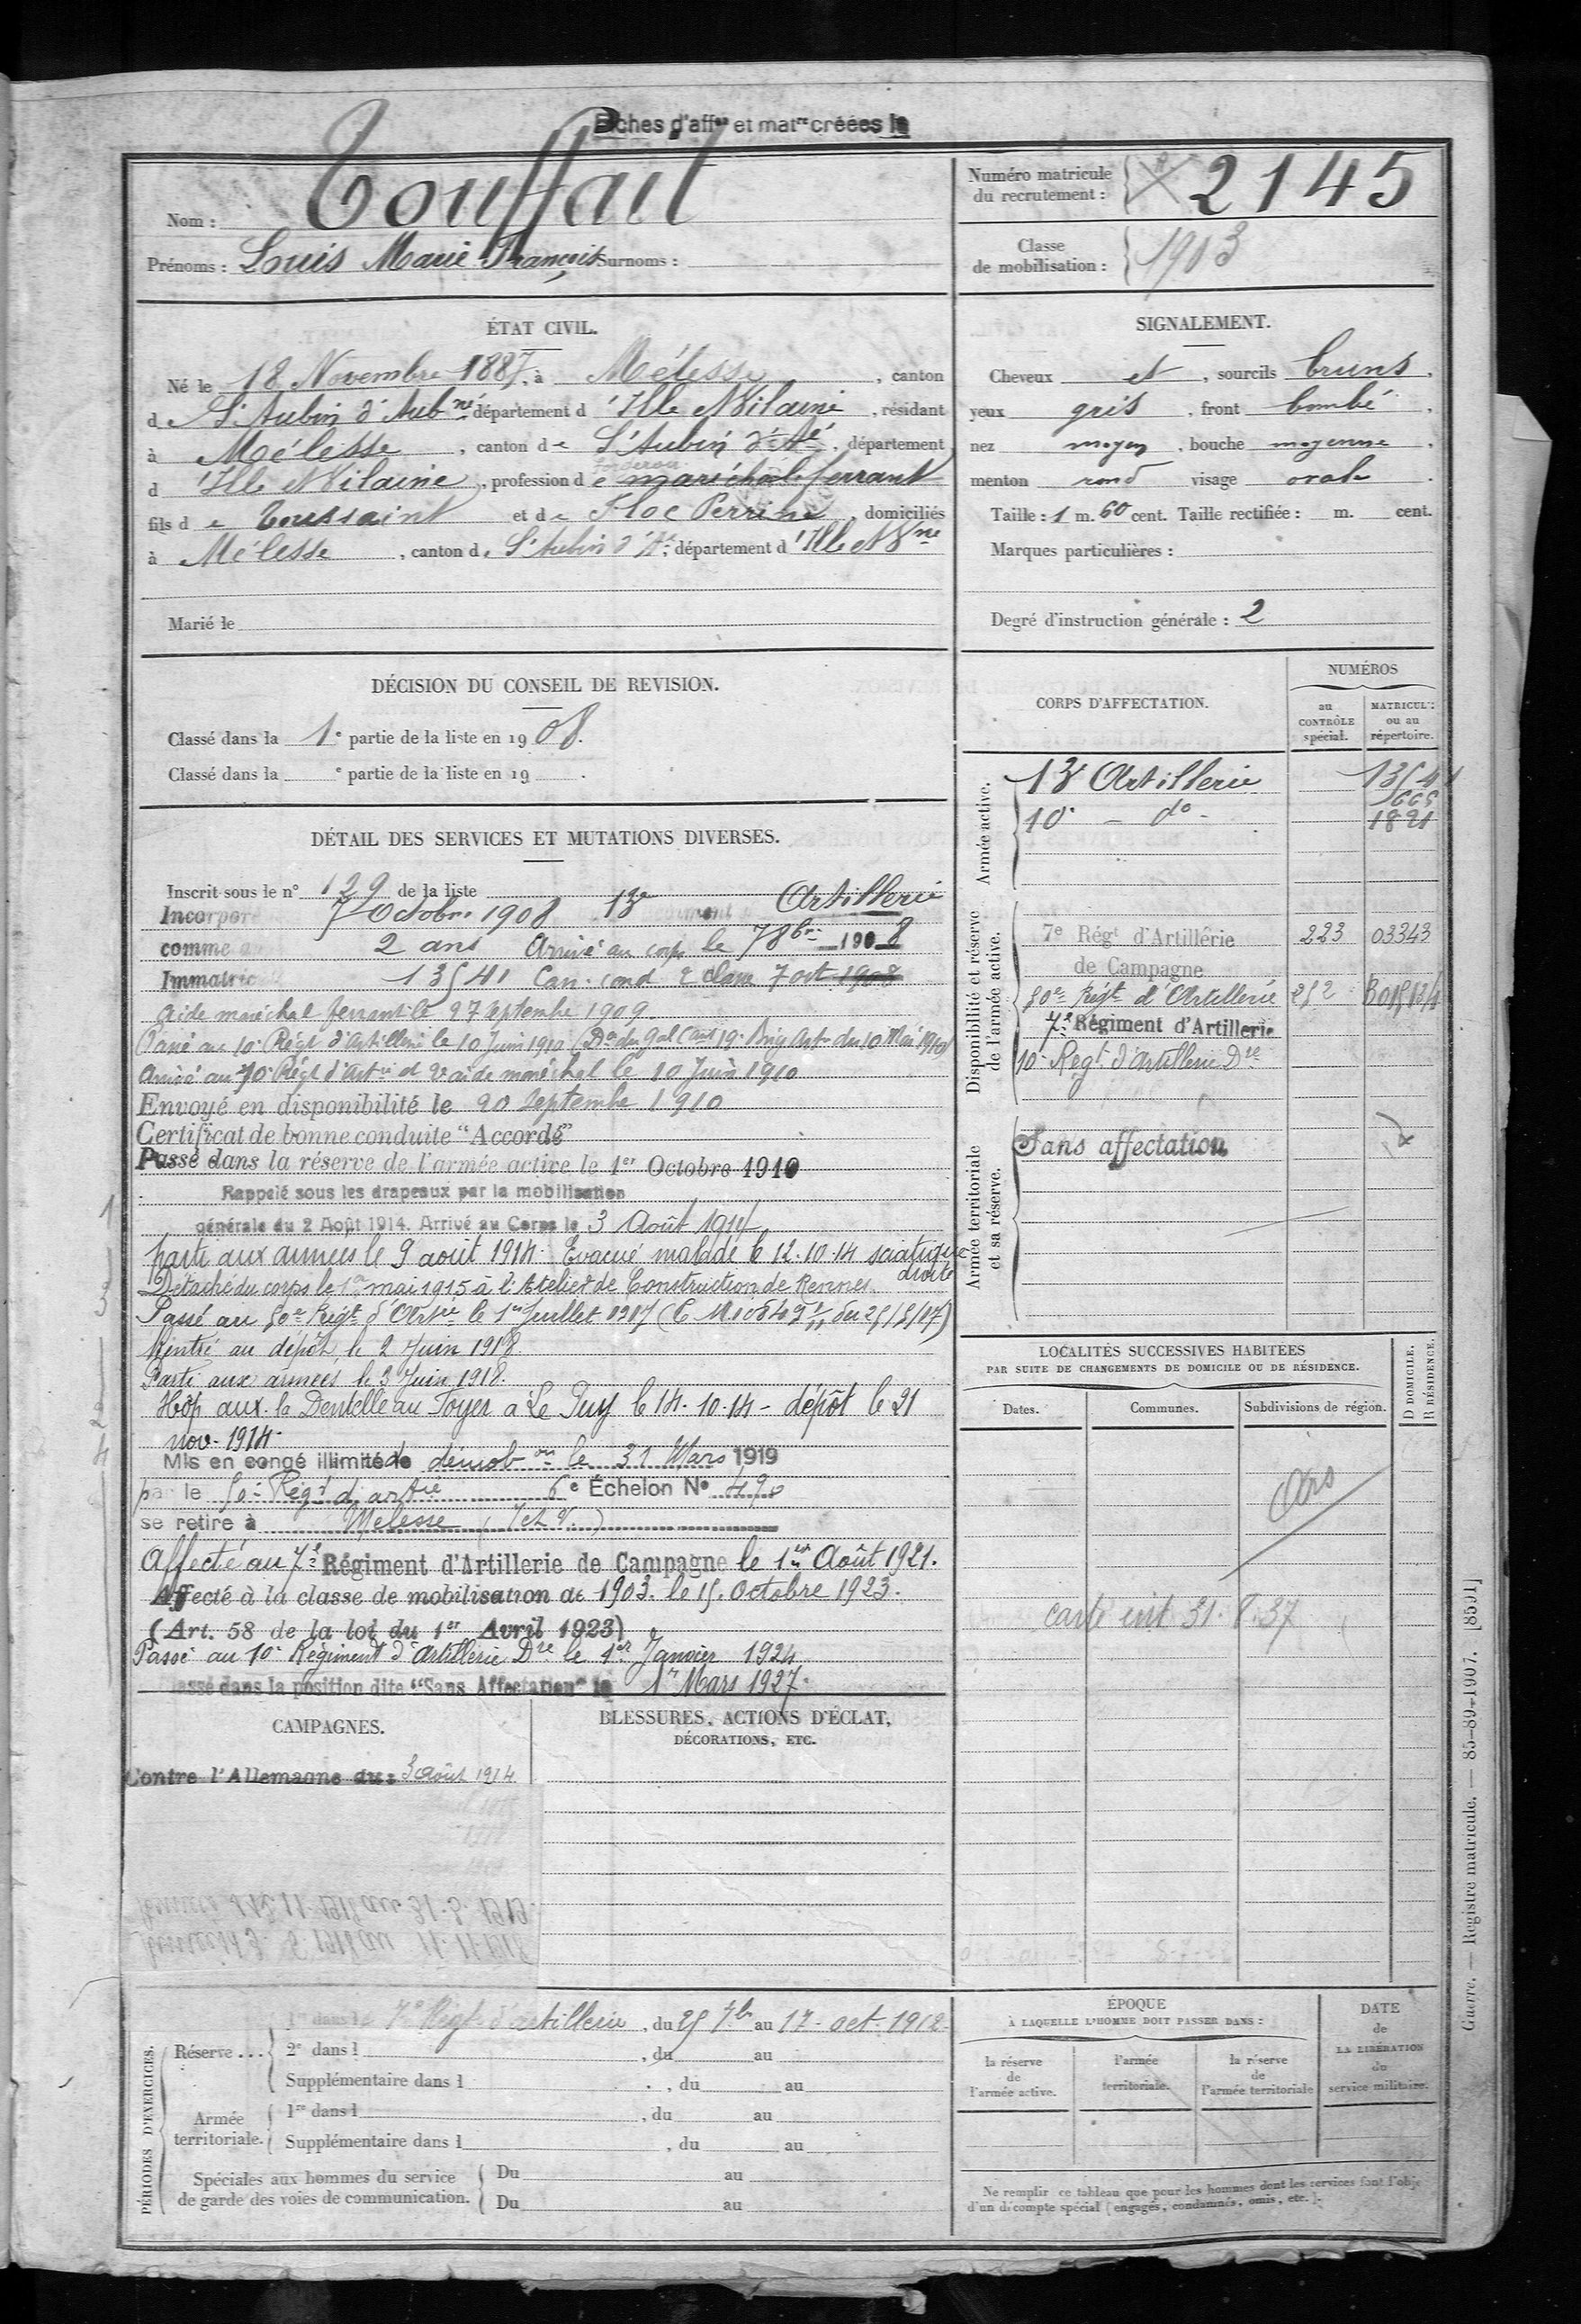 Fiches d'aff⁰ⁿ et mat^re créées le
Nom : Touffait
Prénoms : Louis Marie François Surnoms :
Numéro matricule du recrutement : 2145
Classe de mobilisation : 1903
ÉTAT CIVIL.
Né le 18 Novembre 1887, à Mélesse, canton
de St Aubin d'Aub^né département d'Ille & Vilaine, résidant
à Mélesse, canton de St Aubin d'A^é, département
d'Ille & Vilaine, profession de maréchal ferrant
forgeron
fils de Toussaint et de Floc Perrine, domiciliés
à Mélesse, canton de St Aubin d'A^é département d'Ille & V^ne
Marié le
SIGNALEMENT.
Cheveux et, sourcils bruns,
yeux gris, front bombé,
nez moyen, bouche moyenne,
menton rond visage ovale.
Taille : 1 m. 60 cent. Taille rectifiée : m. cent.
Marques particulières :
Degré d'instruction générale : 2
DÉCISION DU CONSEIL DE REVISION.
Classé dans la 1e partie de la liste en 1908.
Classé dans la e partie de la liste en 19 .
DÉTAIL DES SERVICES ET MUTATIONS DIVERSES.
Inscrit sous le n° 129 de la liste
Incorporé 7 Octobre 1908 13e Artillerie
comme 2 ans Arrivé au corps le 7 8bre 1908
Immatric 13541 Can. cond 2 classe 7 oct 1908
Aide maréchal ferrant le 27 septembre 1909
Passé au 10e Régt d'Artillerie le 10 Juin 1910 (Don du Gal Cant 19e Brig Art du 10 Mai 1910)
Arrivé au 10e Régt d'Artie et 2e aide maréchal le 10 Juin 1910
Envoyé en disponibilité le 20 Septembre 1910
Certificat de bonne conduite "Accordé"
Passé dans la réserve de l'armée active le 1er Octobre 1910
Rappelé sous les drapeaux par la mobilisation
générale du 2 Août 1914. Arrivé au Corps le 3 Août 1914
parti aux armées le 9 août 1914. Evacué malade le 12.10.14 sciatique droite
Détaché du corps le 1er mai 1915 à l'Atelier de Construction de Rennes.
Passé au 50e Régt d'Artie le 1er Juillet 1917
Rentré au dépôt le 2 Juin 1918.
Parti aux armées le 3 Juin 1918.
Hôp aux. la Dentelle au Foyer à Le Puy le 14.10.14 - dépôt le 21
nov. 1914.
Mis en congé illimité de démob^on le 31 Mars 1919
par le 50e Régt d'artie 6e Échelon N° 490
se retire à Melesse (I et V.)
Affecté au 7e Régiment d'Artillerie de Campagne le 1er Août 1921.
Affecté à la classe de mobilisation de 1903. le 15 Octobre 1923.
(Art. 58 de la loi du 1er Avril 1923)
Passé au 10e Régiment d'Artillerie Dre le 1er Janvier 1924
Passé dans la position dite "Sans Affectation" le 1er Mars 1927.
1
3
2
4
CORPS D'AFFECTATION.
NUMÉROS
au CONTRÔLE spécial.
MATRICULE ou au répertoire.
Armée active.
13e Artillerie 13541
10e - do - 1821
Disponibilité et réserve de l'armée active.
7e Régt d'Artillerie 223 03343
de Campagne
50e Régt d'Artillerie 252
7e Régiment d'Artillerie
10e Regt d'Artillerie Dre
Armée territoriale et sa réserve.
Sans affectation
LOCALITÉS SUCCESSIVES HABITÉES
PAR SUITE DE CHANGEMENTS DE DOMICILE OU DE RÉSIDENCE.
Dates. Communes. Subdivisions de région. D DOMICILE. R RÉSIDENCE.
carte 31.8.37
CAMPAGNES.
Contre l'Allemagne du : 3 Août 1914
BLESSURES, ACTIONS D'ÉCLAT,
DÉCORATIONS, ETC.
PÉRIODES D'EXERCICES.
Réserve ...
1re dans le 7e Régt d'artillerie, du 25 7bre au 17 oct. 1912
2e dans l , du au
Supplémentaire dans l , du au
Armée territoriale.
1re dans l , du au
Supplémentaire dans l , du au
Spéciales aux hommes du service
de garde des voies de communication.
Du au
Du au
ÉPOQUE
À LAQUELLE L'HOMME DOIT PASSER DANS :
la réserve de l'armée active.
l'armée territoriale.
la réserve de l'armée territoriale
DATE de LA LIBÉRATION du service militaire.
Ne remplir ce tableau que pour les hommes dont les services font l'obje
d'un décompte spécial (engagés, condamnés, omis, etc.).
Guerre. — Registre matricule. — 85-89-1907. [8591]